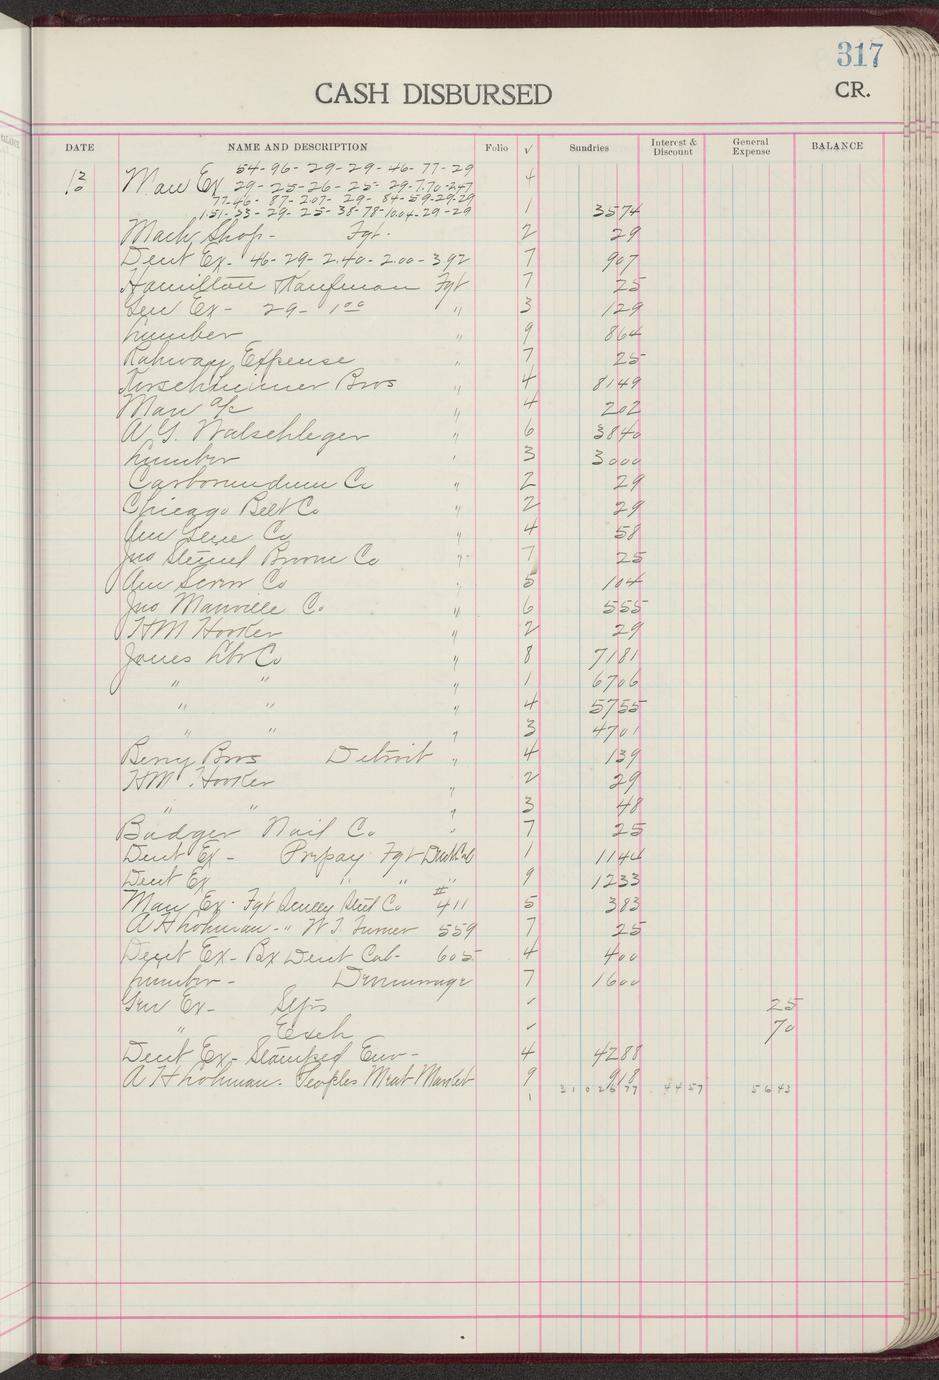 317
CASH DISBURSED
CR.
DATE NAME AND DESCRIPTION Folio √ Sundries Interest & Discount General Expense BALANCE
54-96-29-29-46-77-29
12/0 Man Ex 29-25-26-25-29-7.70-247 4
77-46-87-2.07-29-84-59-29-29
1.51-33-29-25-38-78-10.04-29-29 1 3574
Mach Shop- Fgt. 2 29
Dent Ex- 46-29-2.40-2.00-392 7 907
Hamilton Kaufman Fgt 7 25
Gen Ex- 29- 1 00 " 3 129
Lumber " 9 864
Rahway Expense " 7 25
Bros " 4 8149
Man a/c " 4 202
A. G. Walschleger " 6 3840
Lumber " 3 3000
Carborundum Co " 2 29
Chicago Belt Co " 2 29
Am Glue Co " 4 58
Jno Broom Co " 7 25
Am Screw Co " 5 104
Jno Manville Co " 6 555
HM Hooker " 2 29
Jones Lbr Co " 8 7181
" " " 1 6706
" " " 4 5755
" " " 3 4701
Berry Bros Detroit " 4 139
HM Hooker " 2 29
" " " 3 48
Badger Nail Co " 7 25
Dent Ex- Prepay Fgt Dent Cab 1 1144
Dent Ex " " " 9 1233
Man Ex- Fgt Steel Co #411 5 383
A H Lohman- " W. T. Turner 559 7 25
Dent Ex- Bx Dent Cab- 605 4 400
Lumber- Demurrage 7 1600
Gen Ex- √ 25
" Exch √ 70
Dent Ex- Stamped Env- 4 4288
A H Lohman- Peoples Meat Market 9 918
1 3102677 4457 5643